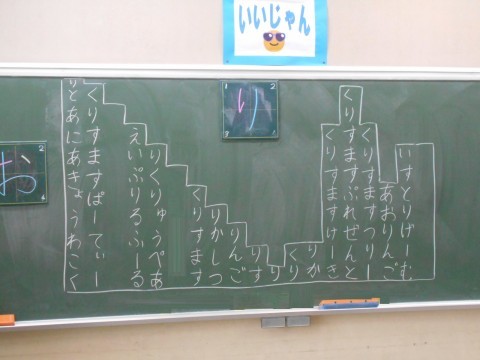 いいじゃん
り
お
いすとりげーむ
あおりんご
くりすますつりー
くりすますぷれぜんと
くりすますけーき
りか
くり
り
りす
りんご
りかしつ
くりすます
りくりゅうぺあ
えいぷりるふーる
くりすますぱーてぃー
りとあにあきょうわこく